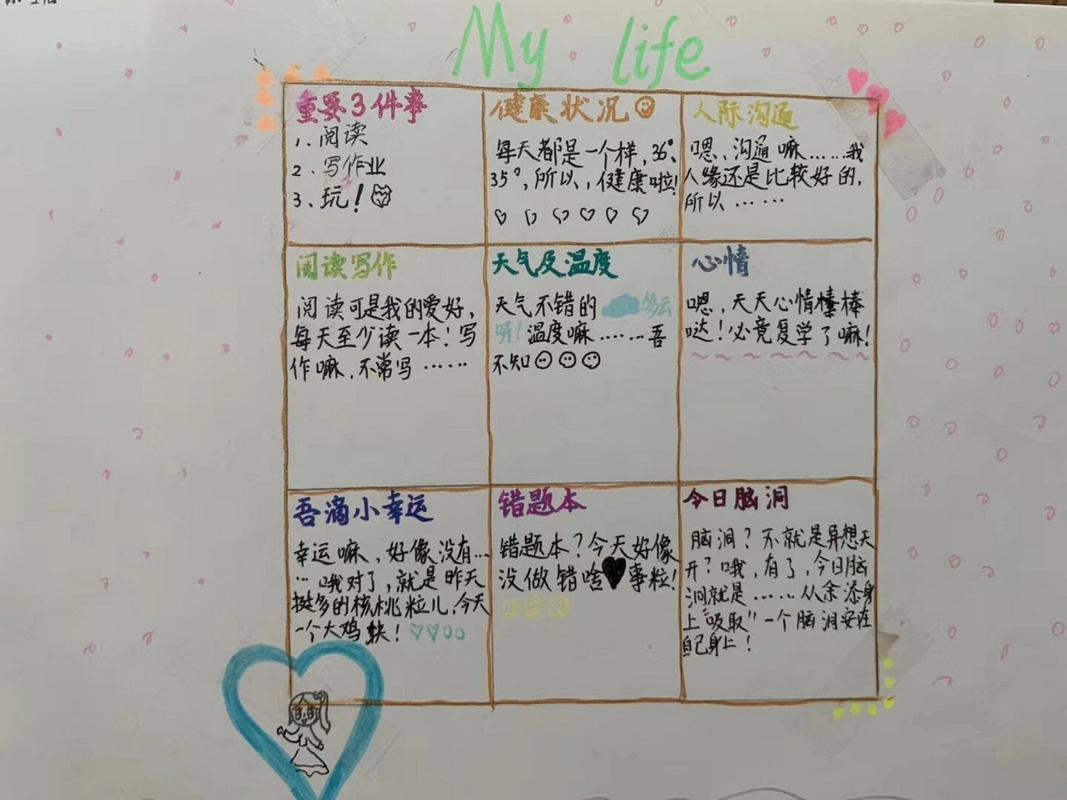 My life
重要3件事
1. 阅读
2. 写作业
3. 玩!
健康状况
每天都是一个样,36°、
35°,所以,健康啦!
人际沟通
嗯、沟通嘛……我
人缘还是比较好的,
所以……
阅读写作
阅读可是我的爱好,
每天至少读一本!写
作嘛,不常写……
天气及温度
天气不错的 多云
呀!温度嘛……吾
不知
心情
嗯,天天心情棒棒
哒!必竟复学了嘛!
吾滴小幸运
幸运嘛、好像没有…
…哦对了,就是昨天
挺多的核桃粒儿,今天
一个大鸡块!
错题本
错题本?今天好像
没做错啥事粒!
今日脑洞
脑洞?不就是异想天
开?哦,有了,今日脑
洞就是……从余添身
上"吸取"一个脑洞安在
自己身上!